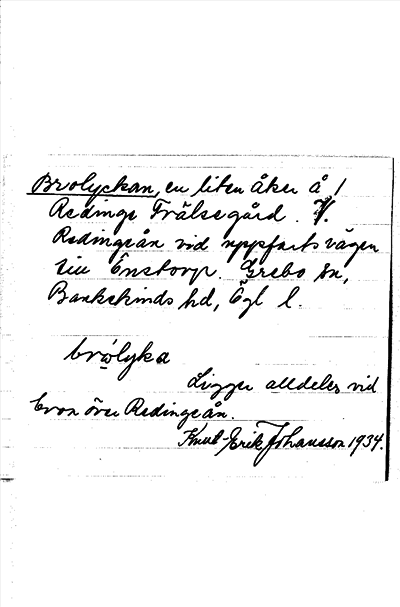 Brolyckan, en liten åker å 1
Redinge Frälsegård. V.
Redingeån vid uppfartsvägen
till Enstorp. Grebo sn,
Bankekinds hd, Ögl l.
brọ̀lyka
Ligger alldeles vid
bron över Redingeån.
Knut-Erik Johansson 1934.